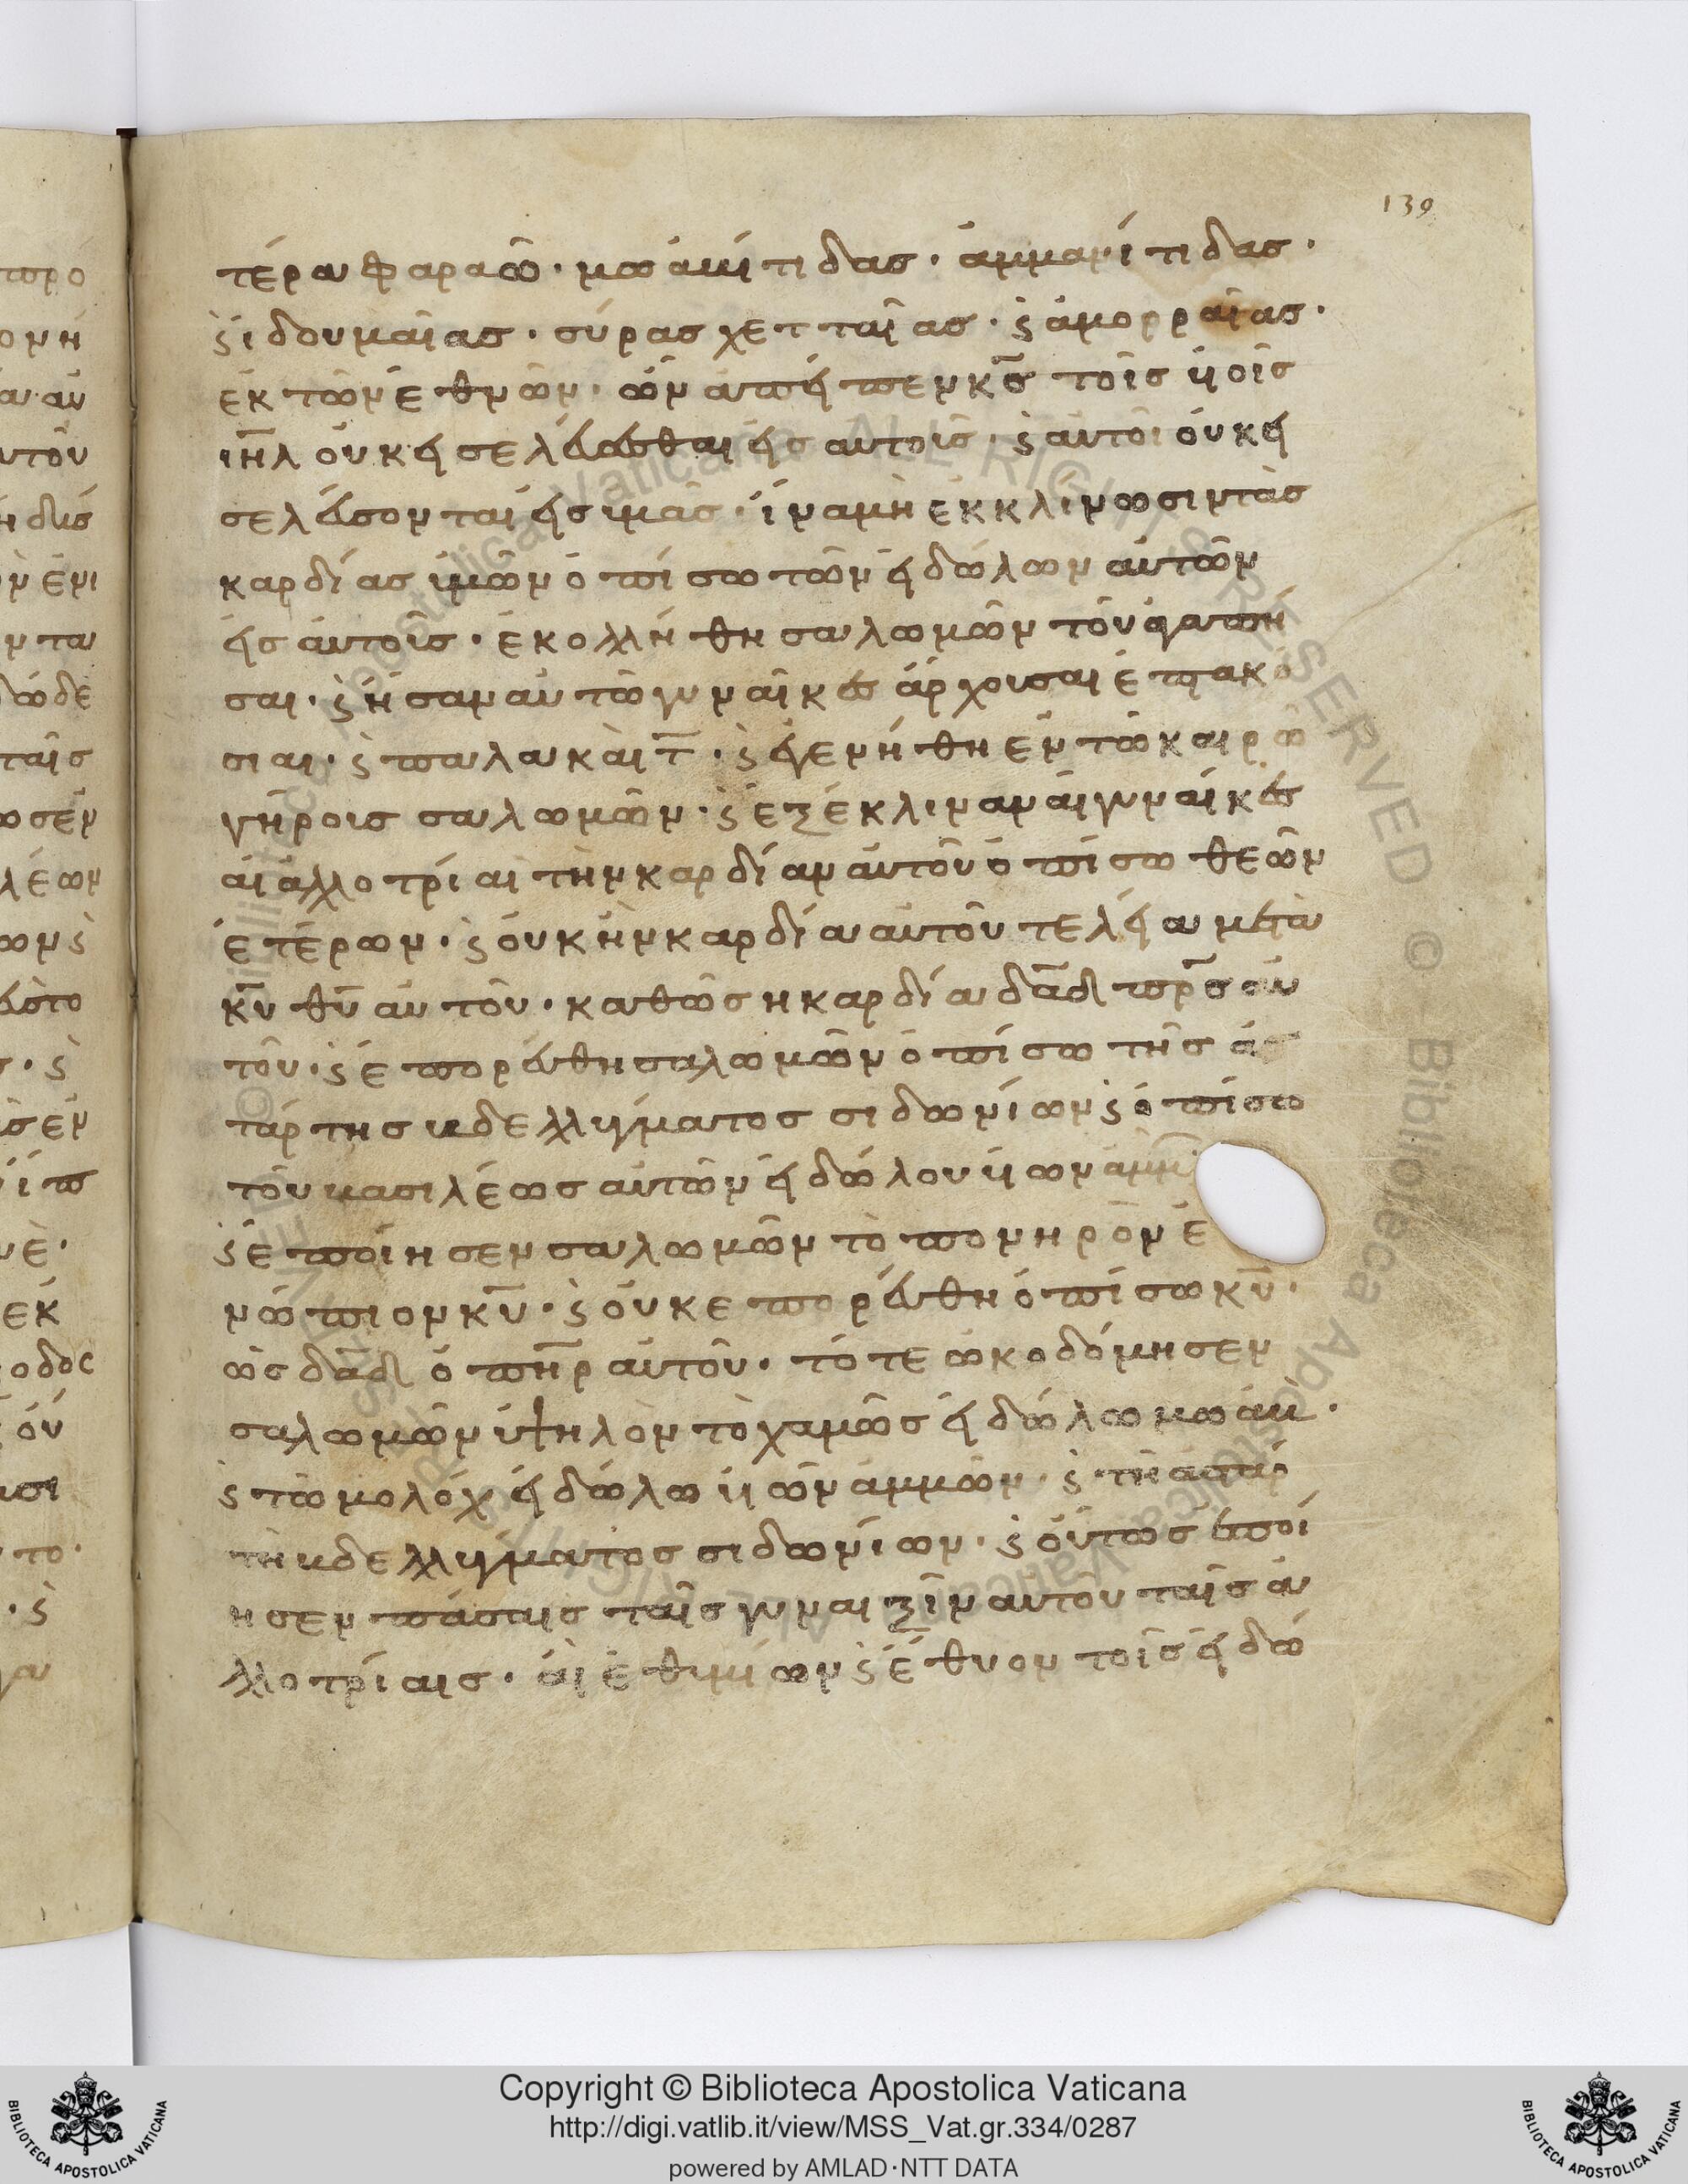 139
τέρα φαραῶ· μωαβίτιδας· ἀμμανίτιδας·
ϛ ἰδουμαῖας· σύρας χετταῖας· ϛ ἀμορραῖας·
ἐκ τῶν ἐθνῶν· ὧν ἀπεῖπεν κ̅ς̅ τοῖς υἱοῖς
ι̅η̅λ̅ οὐκ εἰσελεύσεσθαι εἰς αὐτοῖς· ϛ αὐτοὶ οὐκ εἰ
σελεύσονται εἰς ὑμᾶς· ἵνα μὴ ἐκκλίνωσιν τὰς
καρδίας ὑμῶν ὀπίσω τῶν εἰδώλων αὐτῶν
εἰς αὐτοῖς· ἐκολλήθη σαλωμῶν τοῦ ἀγαπῆ
σαι· ϛ ἦσαν αὐτῶ γυναῖκες ἄρχουσαι ἑπτακό
σιαι· ϛ παλακαὶ τ̅· ϛ ἐγενήθη ἐν τῶ καιρῶ
γήροις σαλωμῶν· ϛ ἐξέκλιναν αἱ γυναίκες
αἱ ἀλλοτρίαι τὴν καρδίαν αὐτοῦ ὀπίσω θεῶν
ἑτέρων· ϛ οὐκ ἦν καρδία αὐτοῦ τελεία μετὰ
κ̅υ̅ θ̅υ̅ αὐτοῦ· καθῶς η καρδία δ̅α̅δ̅ π̅ρ̅ς̅ αὐ
τοῦ· ϛ ἐπορεύθη σαλωμῶν ὀπίσω τῆς ἀσ
τάρτης βδελλύγματος σιδωνίων ϛ ὀπίσω
τοῦ βασιλέως αὐτῶν εἰδώλου υἱων ἀμμ
ϛ ἐποίησεν σαλωμῶν τὸ πονηρὸν ἐ
νώπιον κ̅υ̅· ϛ οὐκ ἐπορεύθη ὀπίσω κ̅υ̅·
ὡς δ̅α̅δ̅ ὁ π̅η̅ρ̅ αὐτοῦ· τότε ὠκοδόμησεν
σαλωμῶν ὑψηλὸν τὸ χαμῶς εἰδώλω μωάβ·
ϛ τῶ μολόχ εἰδώλω υἱῶν ἀμμῶν· ϛ τῆ ἀστάρ
τη βδελλύγματος σιδωνίων· ϛ οὕτως ἐποί
ησεν πάσαις ταῖς γυναιξῖν αὐτοῦ ταῖς ἀ
λλοτρίαις· αἳ ἐθυμίων ϛ ἔθυον τοῖς εἰδώ
Copyright © Biblioteca Apostolica Vaticana
http://digi.vatlib.it/view/MSS_Vat.gr.334/0287
powered by AMLAD·NTT DATA
BIBLIOTECA APOSTOLICA VATICANA
BIBLIOTECA APOSTOLICA VATICANA